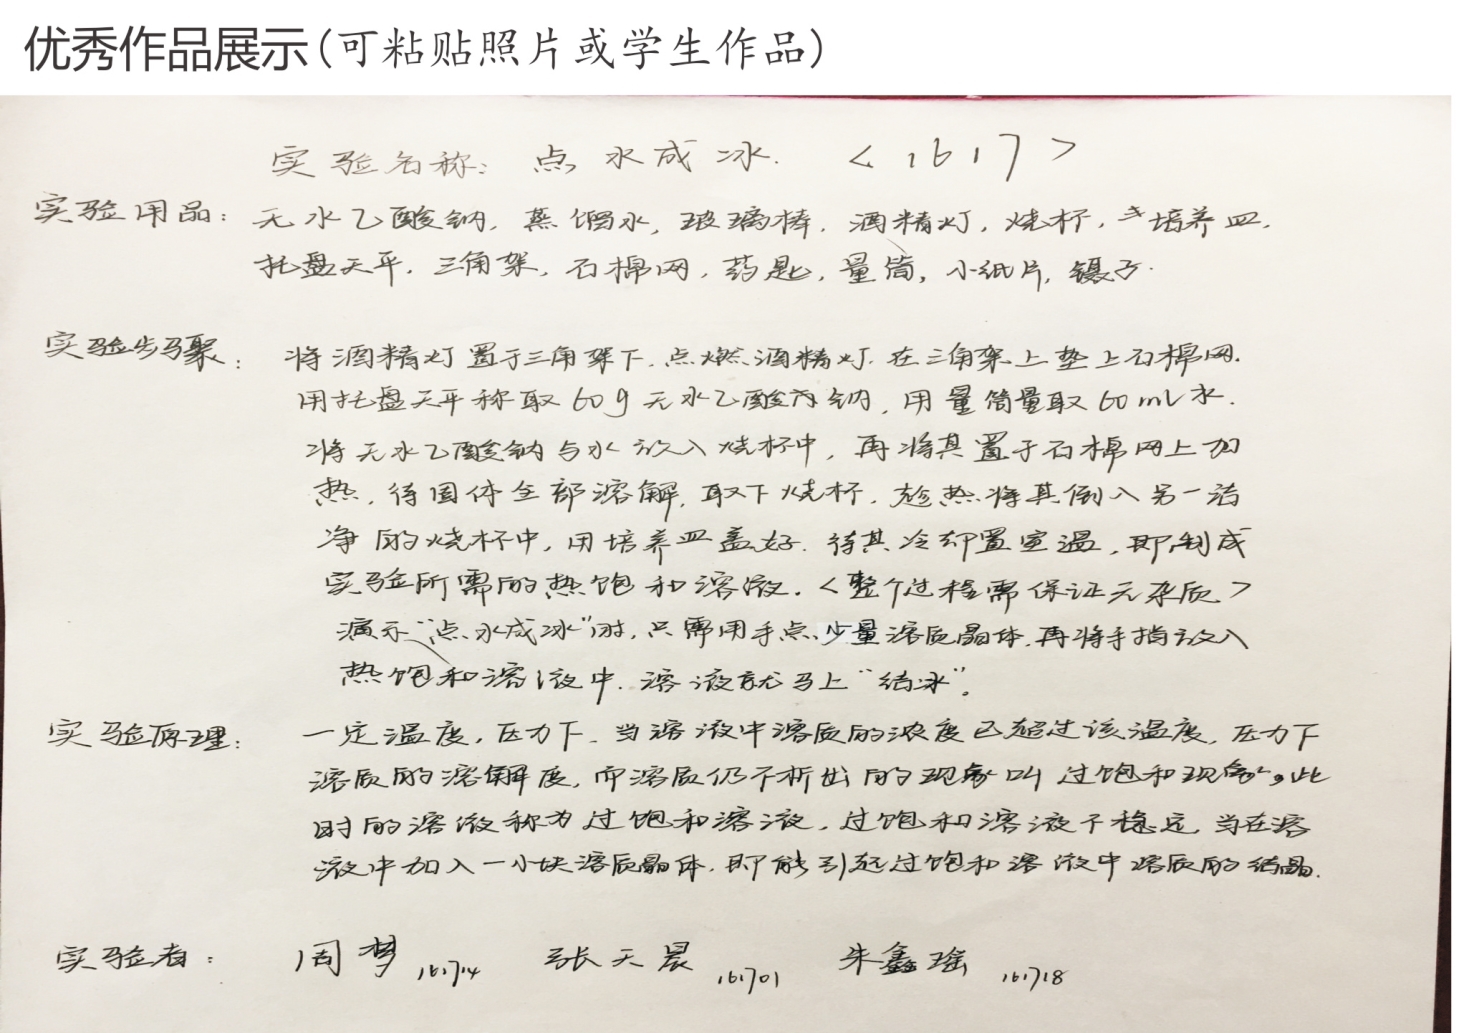 优秀作品展示(可粘贴照片或学生作品)
实验名称：点水成冰. <1617>
实验用品：无水乙酸钠, 蒸馏水, 玻璃棒, 酒精灯, 烧杯, 培养皿,
托盘天平, 三角架, 石棉网, 药匙, 量筒, 小纸片, 镊子.
实验步骤：将酒精灯置于三角架下, 点燃酒精灯. 在三角架上垫上石棉网.
用托盘天平称取60g无水乙酸钠, 用量筒量取60ml水.
将无水乙酸钠与水放入烧杯中, 再将其置于石棉网上加
热, 待固体全部溶解, 取下烧杯, 趁热将其倒入另一洁
净的烧杯中, 用培养皿盖好. 待其冷却置室温, 即制成
实验所需的热饱和溶液. <整个过程需保证无杂质>
演示“点水成冰”时, 只需用手点少量溶质晶体, 再将手指放入
热饱和溶液中. 溶液就马上“结冰”。
实验原理：一定温度, 压力下, 当溶液中溶质的浓度已超过该温度, 压力下
溶质的溶解度, 而溶质仍不析出的现象叫过饱和现象, 此
时的溶液称为过饱和溶液, 过饱和溶液不稳定, 当在溶
液中加入一小块溶质晶体, 即能引起过饱和溶液中溶质的结晶.
实验者：周梦 161714 张天晨 161701 朱鑫瑶 161718